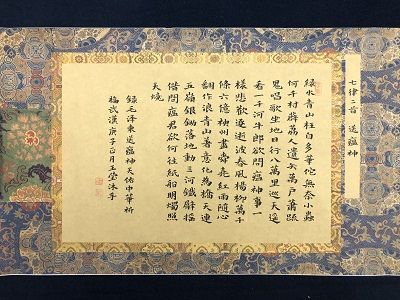 七律二首 送瘟神
綠水青山枉自多華佗無奈小蟲
何千村薜荔人遺矢萬戶蕭疏
鬼唱歌坐地日行八萬里巡天遙
看一千河牛郎欲問瘟神事一
樣悲歡逐逝波春風楊柳萬千
條六億神州盡舜堯紅雨隨心
翻作浪青山著意化為橋天連
五嶺銀鋤落地動三河鐵臂搖
借問瘟君欲何往紙船明燭照
天燒
錄毛澤東送瘟神天佑中華祈
福武漢庚子正月玉瑩沐手